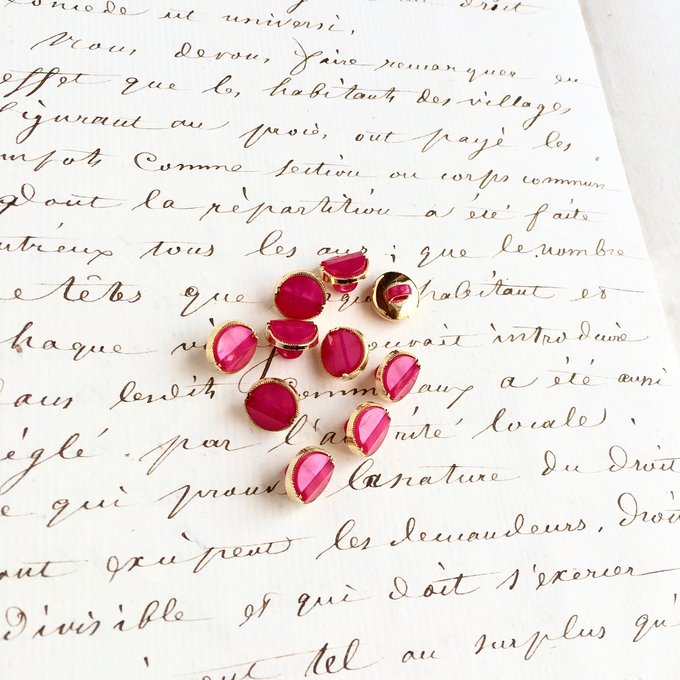 comède ut universi.
Nous devons faire remarquer en
effet que les habitants des villages
figurant au procès ont payé les
impots comme section ou corps commun
dont la répartition a été faite
entr'eux tous les ans ; que le nombre
de têtes que habitant et
chaque pouvait introduire
dans lesdits communaux a été aussi
réglé par l'autorité locale ;
ce qui prouve la nature du droit
dont excipent les demandeurs, droit
divisible et qui doit s'exercer
tel au surplus qu'